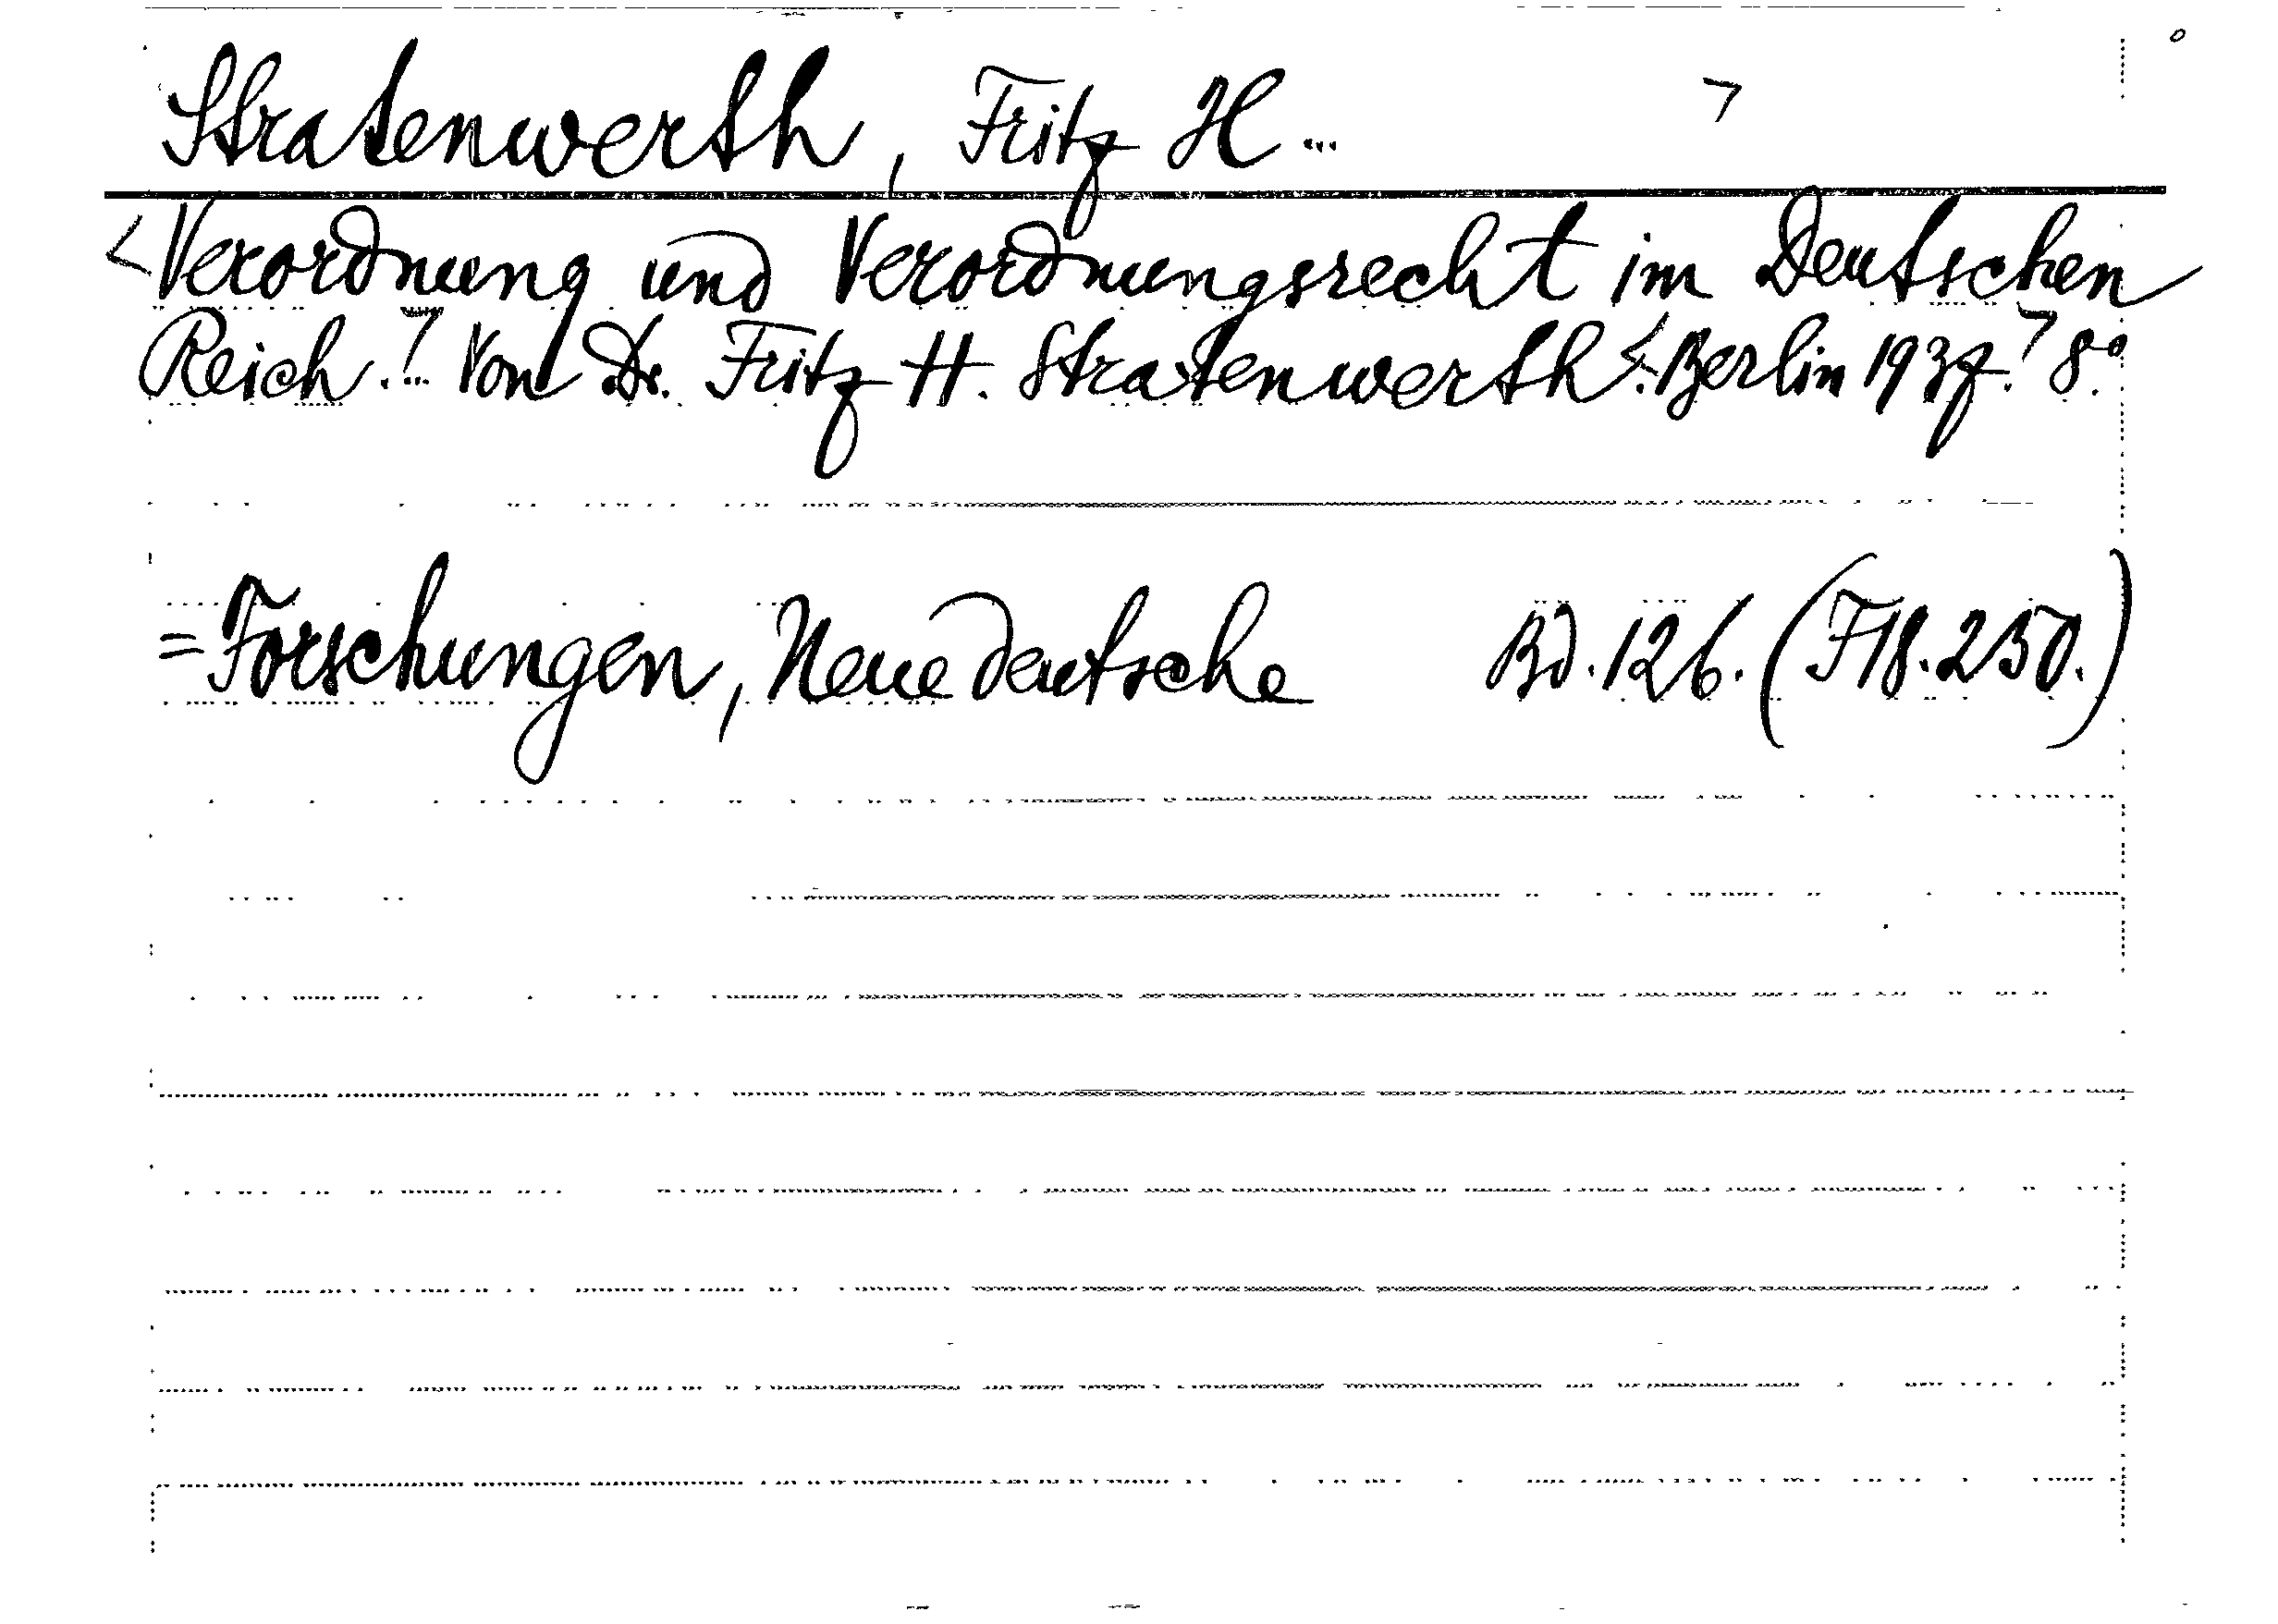 Stratenwerth, Fritz H... >
<Verordnung und Verordnungsrecht im Deutschen
Reich.> ... Von Dr. Fritz H. Stratenwerth <. Berlin 1937.> 8.°
= Forschungen, Neue deutsche Bd. 126. (F 18. 250.)